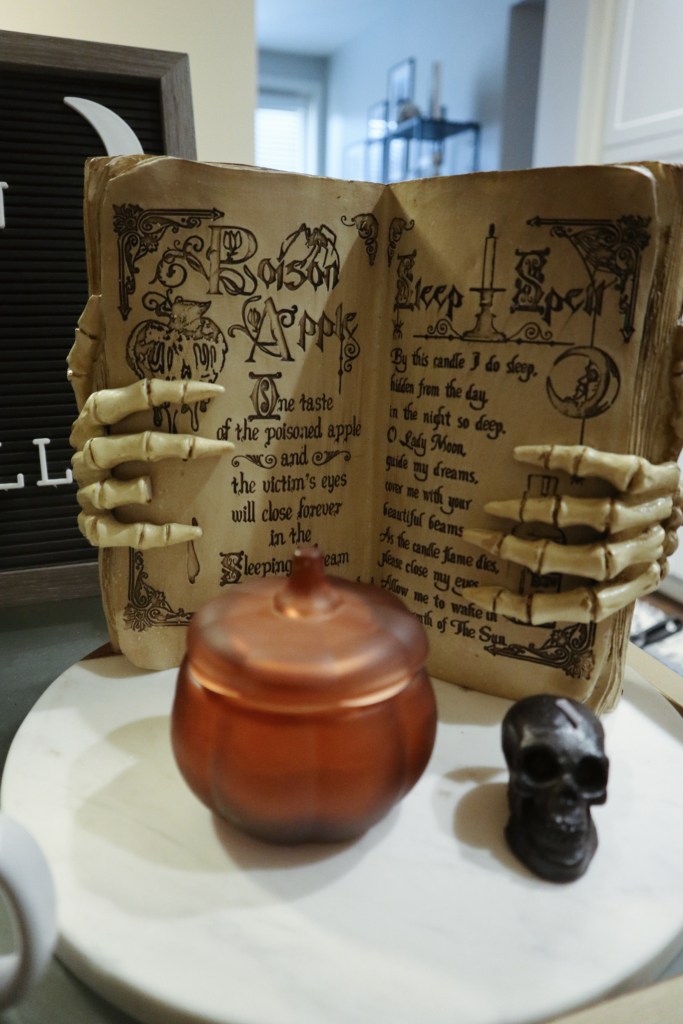 LL
Poison
Apple
One taste
of the poisoned apple
and
the victim's eyes
will close forever
in the
Sleeping
Sleep Spell
By this candle I do sleep,
hidden from the day,
in the night so deep.
O Lady Moon,
guide my dreams,
cover me with your
beautiful beams
As the candle flame dies,
please close my eyes
Allow me to wake in
of The Sun